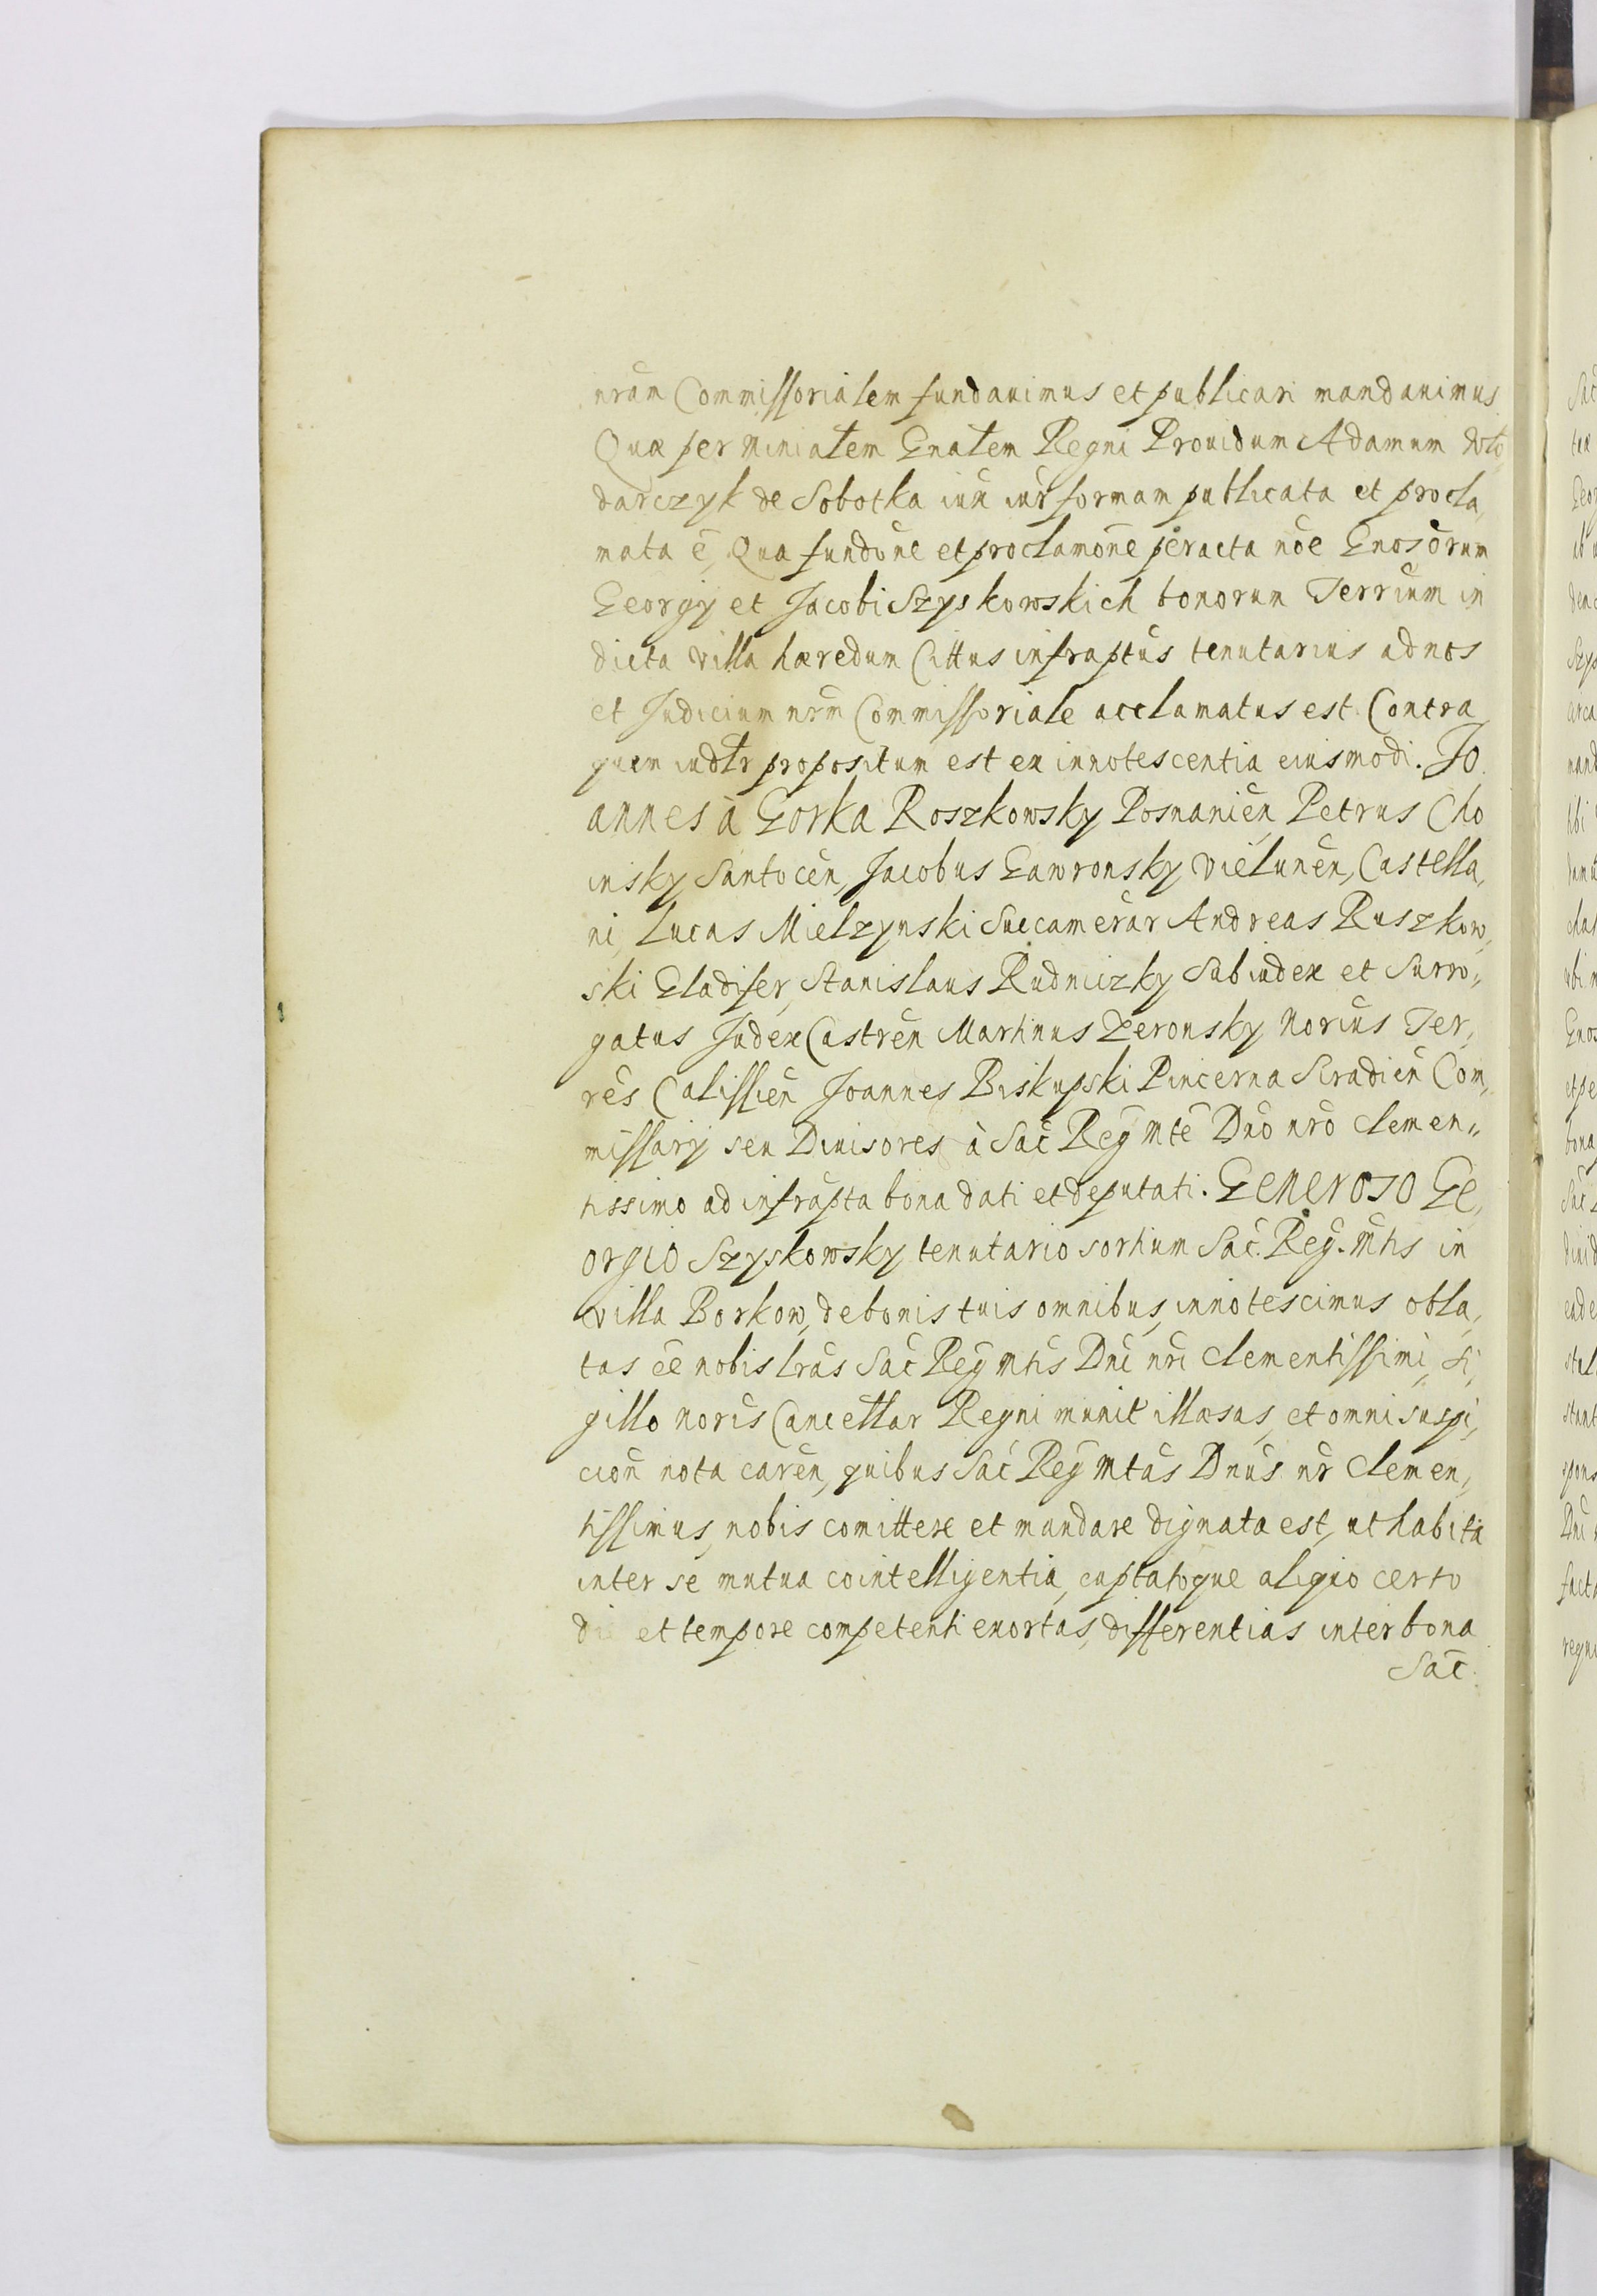 nram Commissorialem fundauimus et publicari mandauimus
Quæ per Miniałem Gnałem Regni Prouidum Adamum
darczyk de Sobotka iun iur formam publicata et procla,
mata ē, Qua fundōne et proclamōne peracta nōe Gnosōrum
Georgij et Jacobi Szyskowskich bonorum Terrium in
dicta villa hæredum Cittus infraptus tenutarius ad nos
et Judicium nrm Commissoriale acclamatus est. Contra
quem iudłr propositum est ex innotescentia eiusmodi. Jo
annes à Gorka Roszkowsky Posnanien, Petrus Cho
insky Santocen, Jacobus Gawronsky Vielunen, Castella,
ni, Lucas Mielzynski Succamerar Andreas Ruszkow,
ski Gladifer, Stanislaus Rudniczky Subiudex et Surro,,
gatus Judex Castren Martinus Zeronsky Norius Ter,
res Calissien Joannes Biskupski Pincerna Siradien Com,
missarij seu Diuisores à Sac Reg Mte Dno nro clemen,,
tissimo ad infrapta bona dati et deputati. Generoso Ge,
orgio Szyskowsky tenutario sortium Sac. Reg. Mtis in
villa Borkow, de bonis tuis omnibus, innotescimus obla,
tas ēē nobis lras Sac Reg Mtis Dni nri clementissimi, Si,
gillo noris Cancellar Regni munit illæsas, et omni suspi,
cion nota caren, quibus Sac Reg Mtas Dnus nr clemen,
tissimus, nobis comittere et mandare dignata est, ut habita
inter se mutua cointelligentia, captatoque aliquo certo
di et tempore competenti exortas, differentias inter bona
Sac